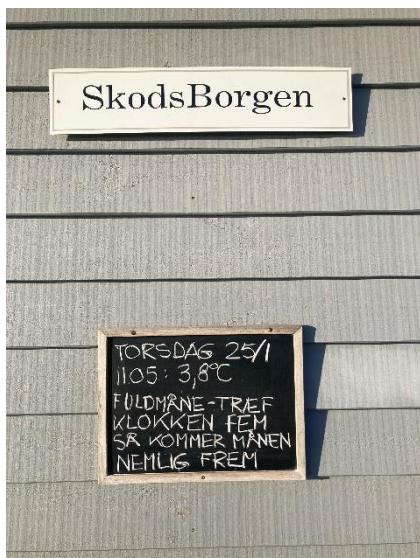 SkodsBorgen
TORSDAG 25/1
1105: 3,8°C
FULDMÅNE-TRÆF
KLOKKEN FEM
SÅ KOMMER MÅNEN
NEMLIG FREM